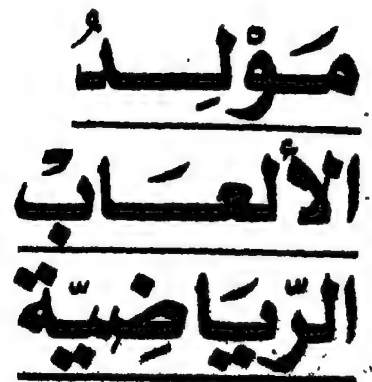 مَوْلِدُ
الألعَابْ
الرّيَاضِيّة